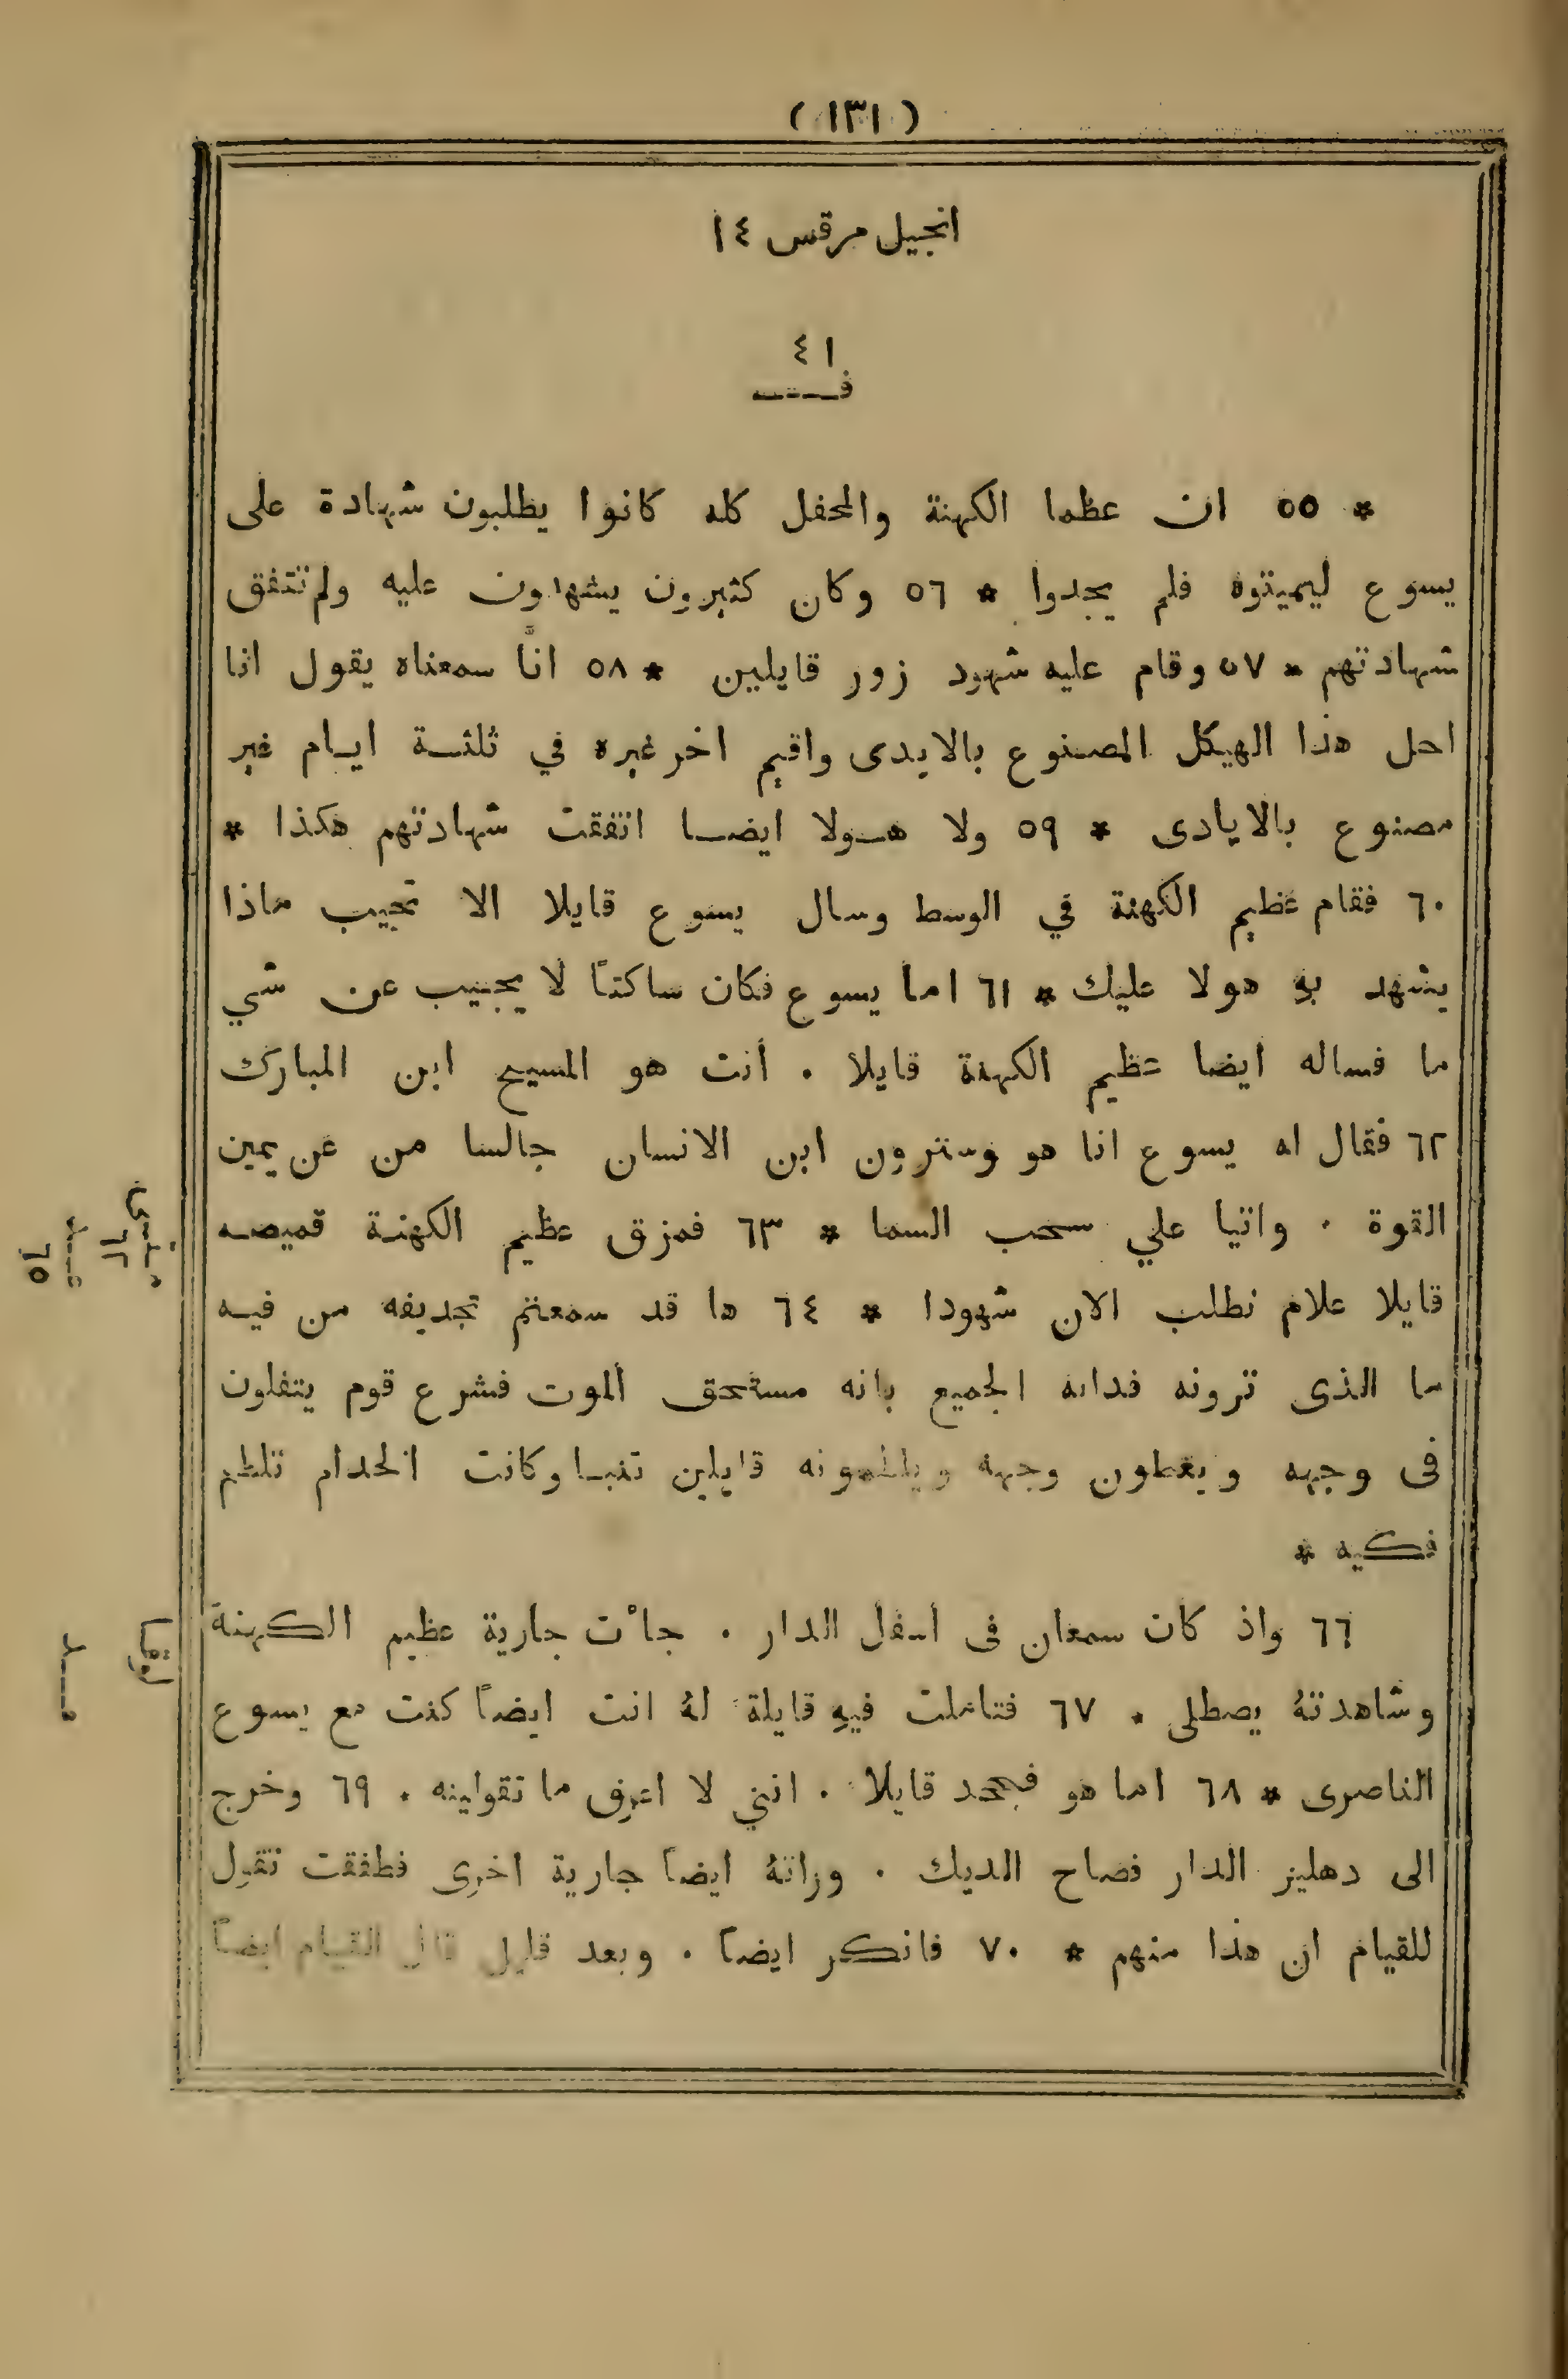 ( ١٣١ )
انجيل مرقس ١٤
٤١
* ٥٥ ان عظما الكهنة والمحفل كله كانوا يطلبون شهادة على
يسوع ليميتوه فلم يجدوا * ٥٦ وكان كثيرون يشهدون عليه ولم تتفق
شهادتهم * ٥٧ وقام عليه شهود زور قايلين * ٥٨ انَّا سمعناه يقول انا
احل هذا الهيكل المصنوع بالايدى واقيم اخر غيره في ثلثة ايام غير
مصنوع بالايادى * ٥٩ ولا هولا ايضا اتفقت شهادتهم هكذا *
٦٠ فقام عظيم الكهنة في الوسط وسال يسوع قايلا الا تجيب ماذا
يشهد به هولا عليك * ٦١ اما يسوع فكان ساكتاً لا يجيب عن شي
ما فساله ايضا عظيم الكهنة قايلا . أنت هو المسيح ابن المبارك
٦٢ فقال له يسوع انا هو وسترون ابن الانسان جالسا من عن يمين
القوة . واتيا علي سحب السما * ٦٣ فمزق عظيم الكهنة قميصه
قايلا علام نطلب الان شهودا * ٦٤ ها قد سمعتم تجديفه من فيه
ما الذى ترونه فدانه الجميع بانه مستحق الموت فشرع قوم يتفلون
فى وجهه ويغطون وجهه ويلطمونه قايلين تنبا وكانت الخدام تلطم
فكيه *
٦٦ واذ كان سمعان فى اسفل الدار . جاْت جارية عظيم الكهنة
وشاهدتهُ يصطلى . ٦٧ فتاملت فيهِ قايلة لهُ انت ايضاً كنت مع يسوع
الناصرى * ٦٨ اما هو فجحد قايلا . انني لا اعرف ما تقولينه . ٦٩ وخرج
الى دهليز الدار فصاح الديك . وراتهُ ايضاً جارية اخرى فطفقت تقول
للقيام ان هذا منهم * ٧٠ فانكر ايضاً . وبعد قليل قال القيام ايضاً
٦١
٦٥
لوقا